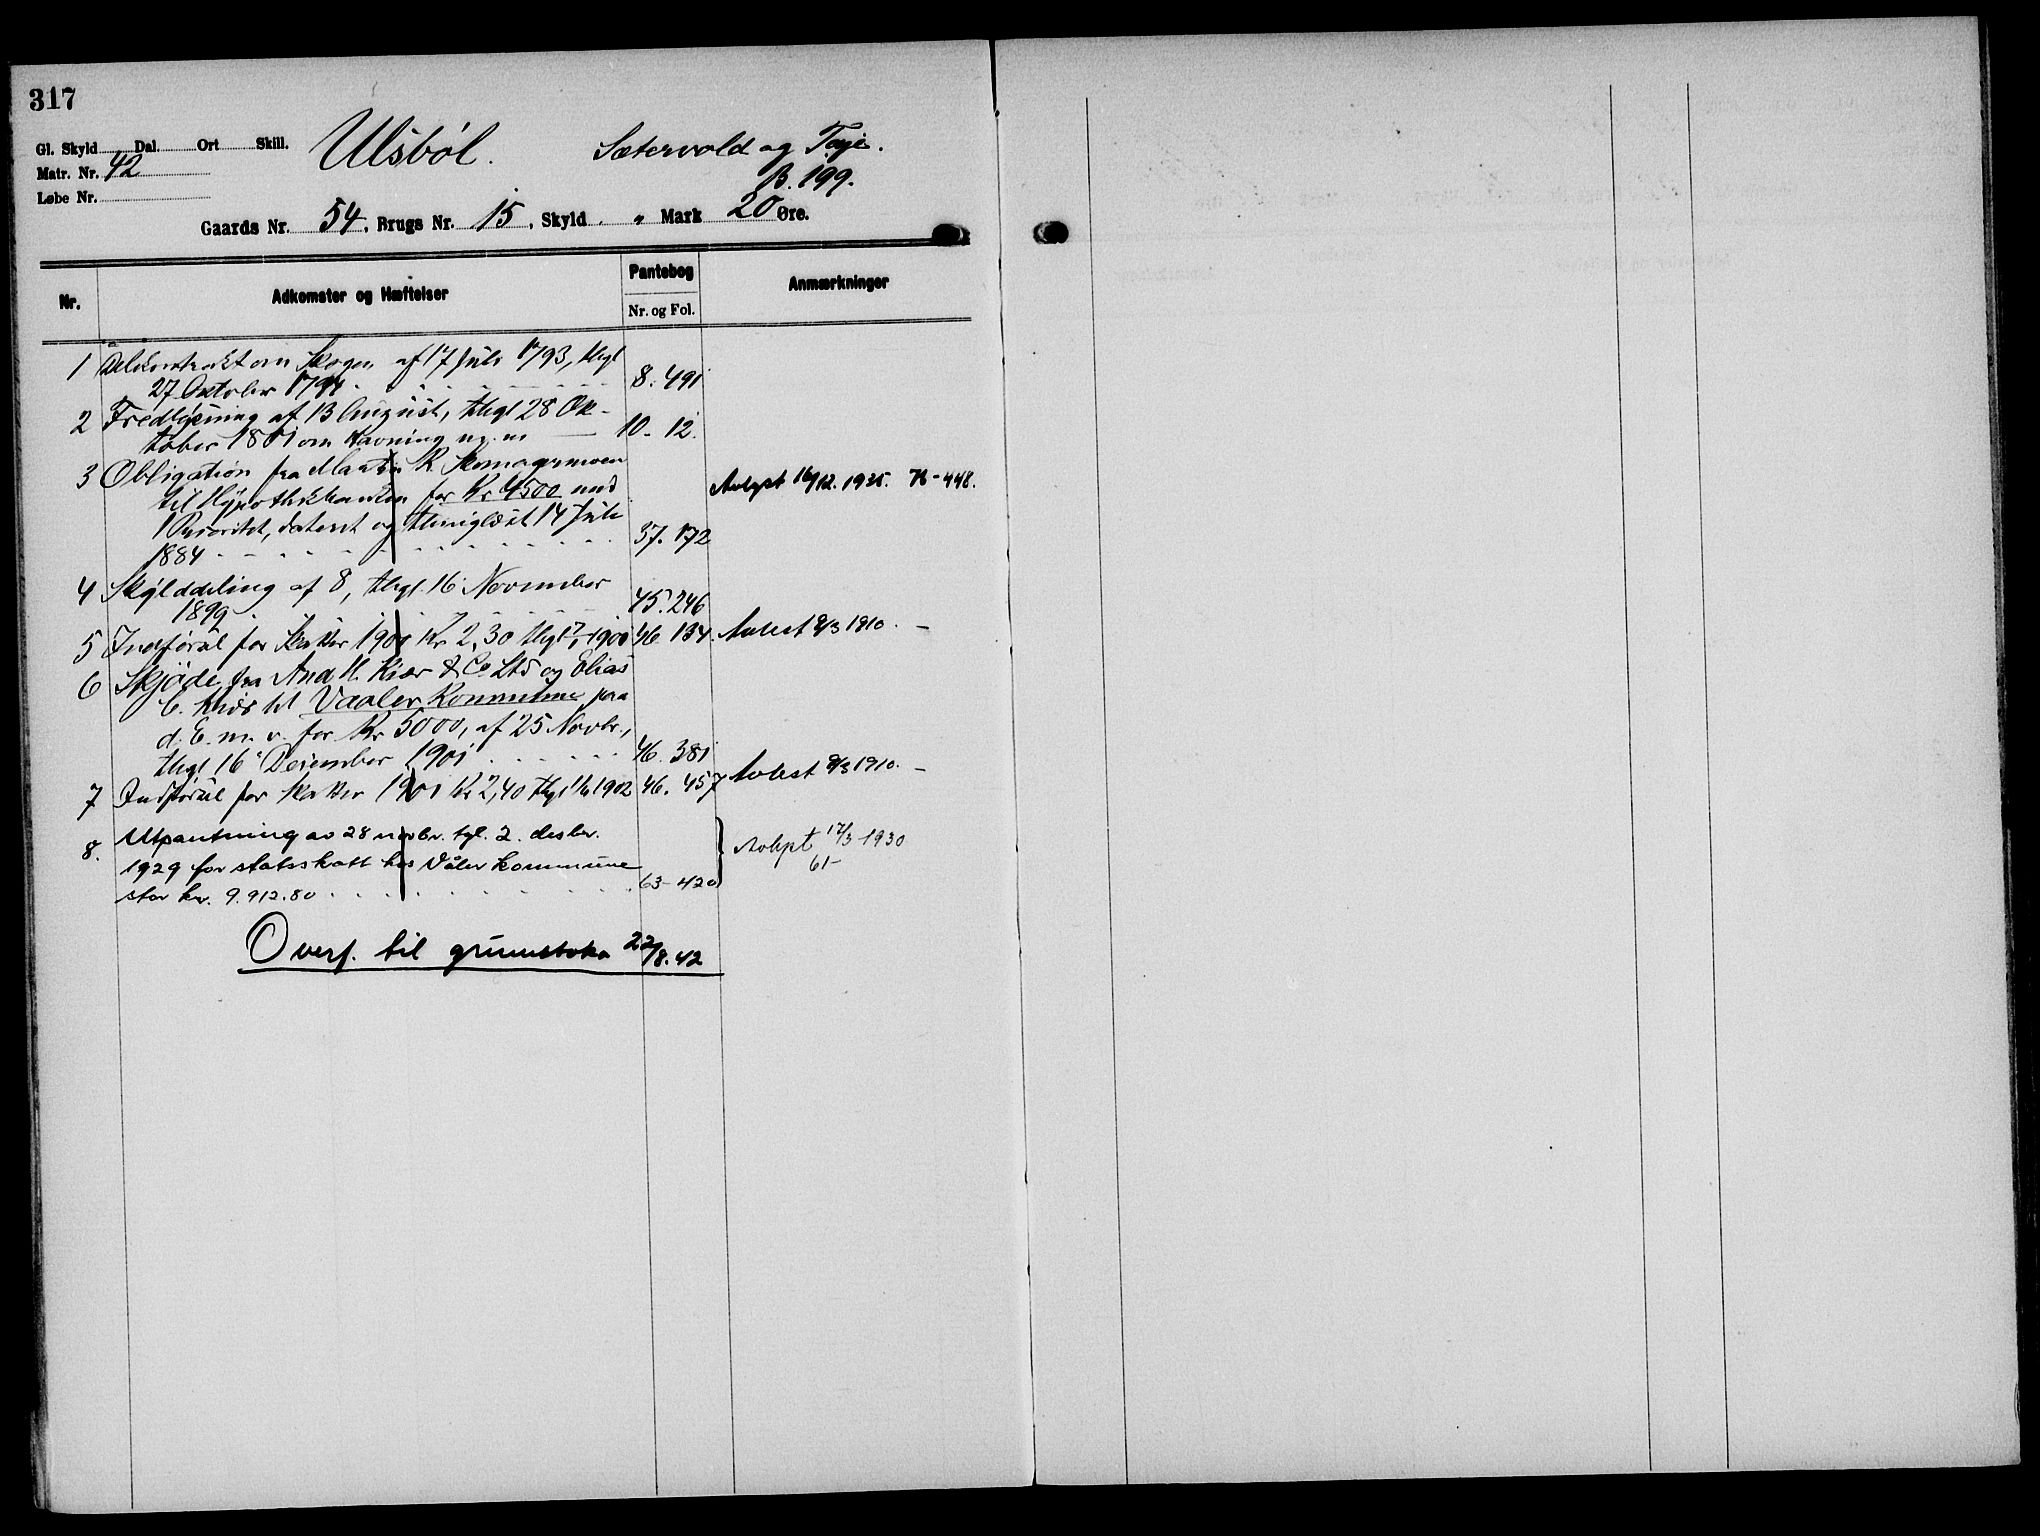 317
Gl. Skyld Dal. Ort Skill.
Ulsbøl. Sætervold og
Matr. Nr. 42
B. 199.
Løbe Nr.
Gaards Nr. 54, Brugs Nr. 15, Skyld „ Mark 20 Øre.
Nr. Adkomster og Hæftelser Pantebog Anmærkninger
Nr. og Fol.
1 Delekontrakt om Skogen af 17 Juli 1793, thgl
27 Oktober 1794 8. 491
2 Fredlysning af 13 August, thgl 28 Ok-
tober 1801 om Havning m. m 10. 12.
3 Obligation fra R.
til Hypothekbanken for Kr 4500 med Avlyst 16/12. 1935. 76-448.
1 Prioritet, dateret og thinglæst 14 Juli
1884 37. 172
4 Skylddeling af 8, thgl. 16 November
1899. 45. 246
5 Indførsel for Skatter 1900 Kr 2,30 thgl 1900 46. 134. Avlest 8/3 1910. -
6 Skjøde fra And H. Kiær & Co Ltd og Elias
C. Kiær til Vaaler Kommune paa
d. E. m. v. for Kr 5000, af 25 Novbr.,
thgl 16 December 1901 46. 381
7 Indførsel for Skatter 1901 Kr 2,40 thgl 1902 46. 457 Avlest 8/3 1910. -
8. Utpantning av 28 novbr. tgl. 2. desbr.
1929 for statsskatt hos Våler kommune Avlyst 17/3-1930
61-
stor kr. 9.912.80 63-420
Overf. til grunnboka 22/8.42